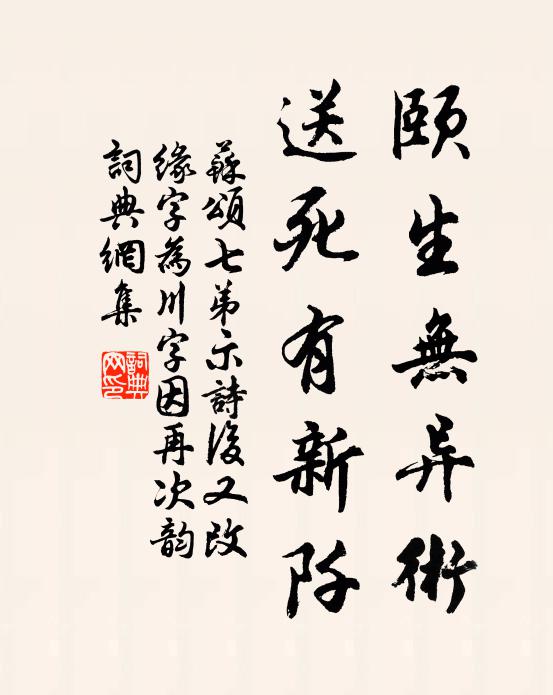 頤生無异術
送死有新阡
蘇頌七弟示詩後又改
緣字為川字因再次韵
詞典網集
詞典
网印